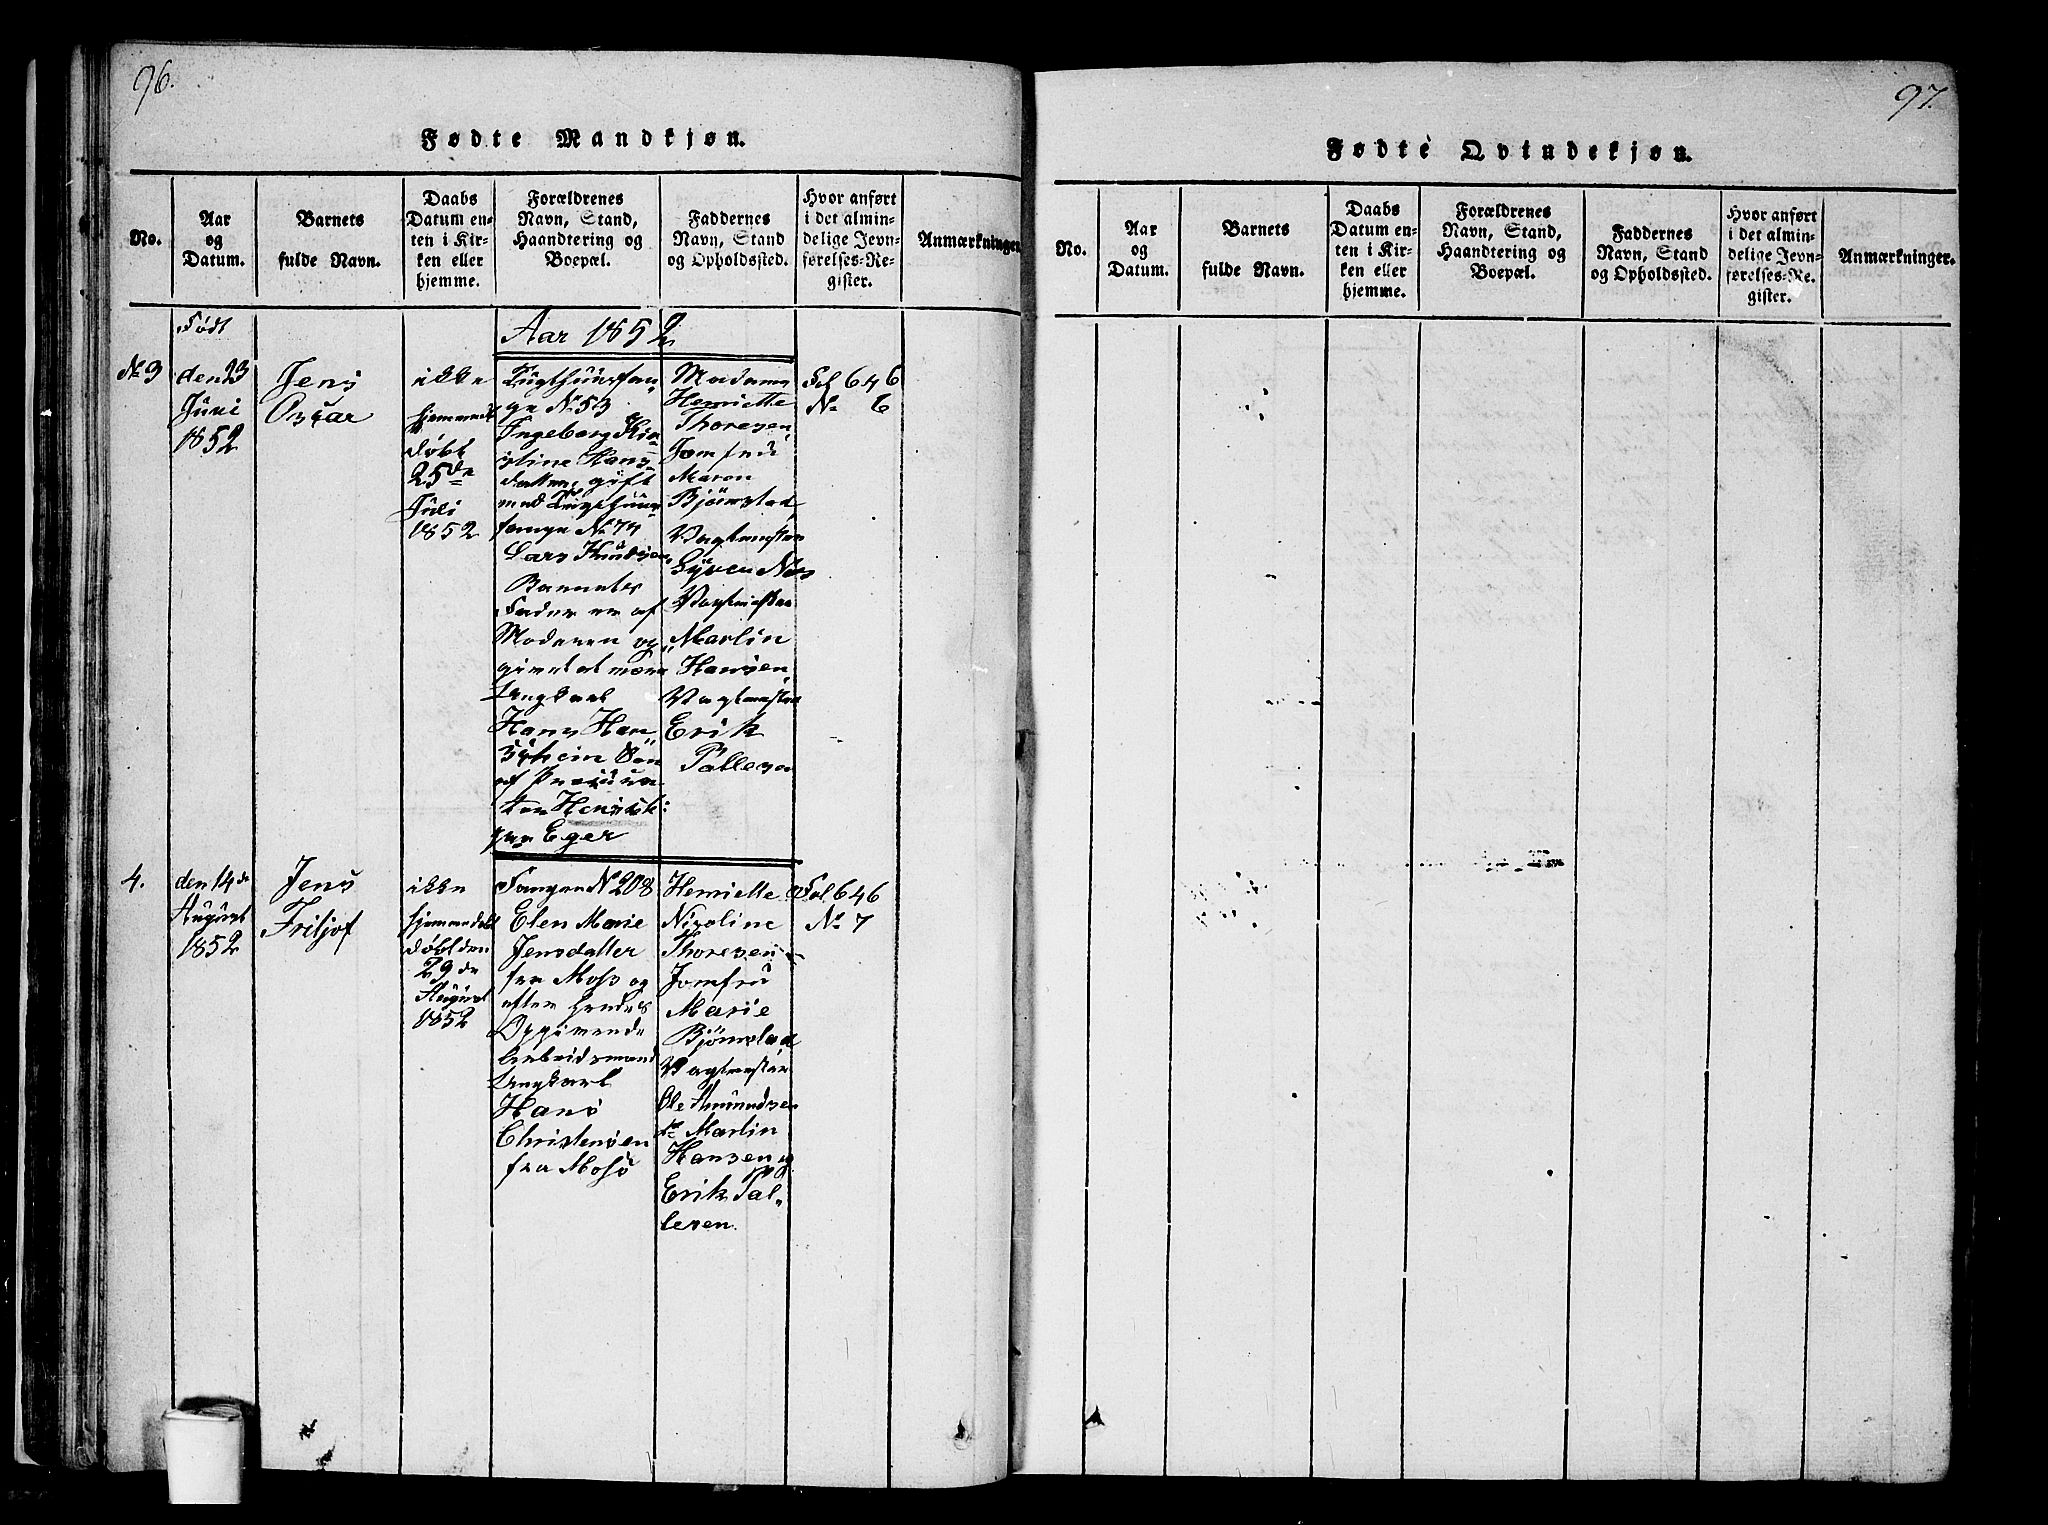 96.
Fødte Mandkjøn.
No.
Aar
og
Datum.
Barnets
fulde Navn.
Daabs
Datum en-
ten i Kir-
ken eller
hjemme.
Forældrenes
Navn, Stand,
Haandtering og
Boepæl.
Faddernes
Navn, Stand
og Opholdssted.
Hvor anført
i det almin-
delige Jevn-
førelses-Re-
gister.
Anmærkninger.
Aar 1852
No 3
Født
den 23
Juni
1852
Jens
Oscar
ikke
hjemmedøbt
døbt
25de
Juli
1852
Tugthuusfan-
ge No 53
Ingeborg Kir-
stine Hans-
datter, gift
med Tugthuus-
fange No 74
Lars Knudsen,
Barnets
Fader er af
Moderen op-
givet at være
Ungkarl
Hans Han
Søn
af
Eger
Madame
Henriette
Thoresen,
Jomfru
Maren
Bjørnstad,
Vagtmester
Syver Næs
Vagtmester
Martin
Hansen,
Vagtmester
Erik
Pallesen
Fol 646
No 6
4.
den 14de
August
1852
Jens
Fritjof
ikke
hjemmedøbt
døbt den
29de
August
1852
Fangen No 208
Elen Marie
Jensdatter
fra Moss og
efter hendes
Opgivende
Arbeidsmand
Ungkarl
Hans
Christensen
fra Moss
Henriette
Nicoline
Thoresen
Jomfru
Marie
Bjørnstad
Vagtmester
Ole Amundsen
do Martin
Hansen og
Erik Pal-
lesen.
Fol 646
No 7
97.
Fødte Qvindekjøn.
No.
Aar
og
Datum.
Barnets
fulde Navn.
Daabs
Datum en-
ten i Kir-
ken eller
hjemme.
Forældrenes
Navn, Stand,
Haandtering og
Boepæl.
Faddernes
Navn, Stand
og Opholdssted.
Hvor anført
i det almin-
delige Jevn-
førelses-Re-
gister.
Anmærkninger.